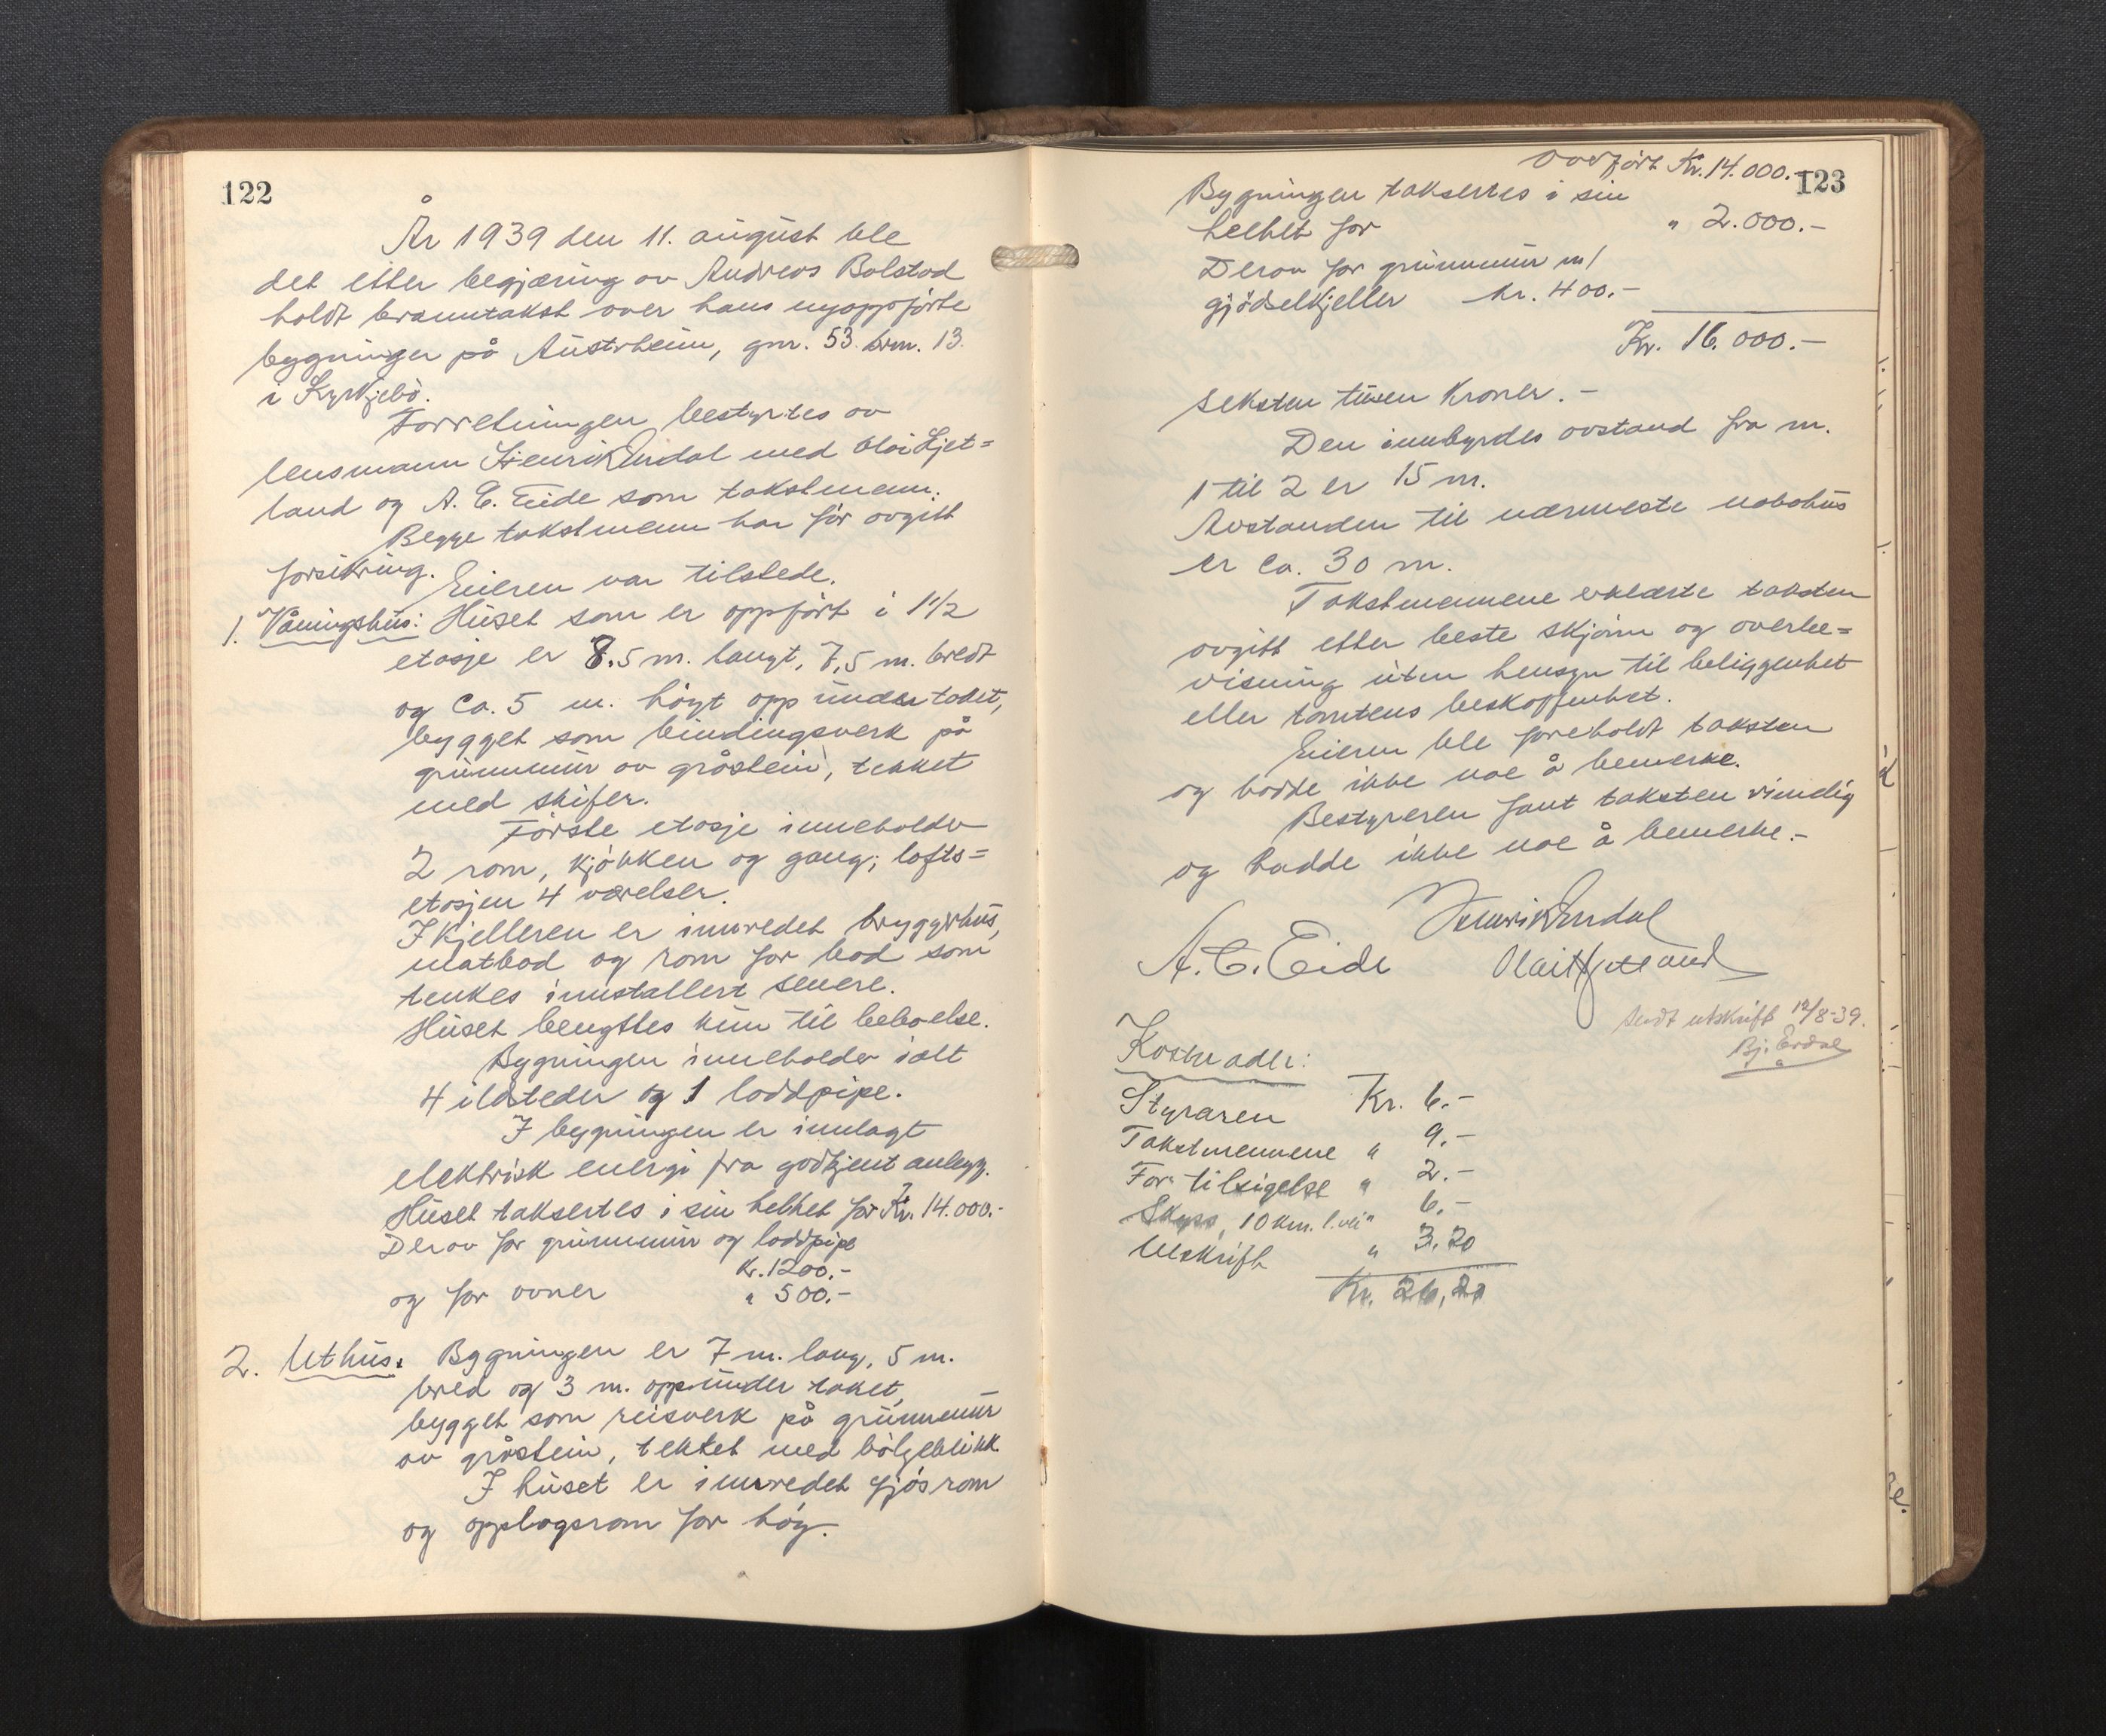 122
År 1939 den 11. august ble
det etter begjæring av Andreas Bolstad
holdt branntakst over hans nyoppförte
bygninger på Austrheim, gnr. 53. brn. 13.
i Kyrkjebö.
Forretningen bestyrtes av
lensmann Henrik Erdal med Olai Hjet=
land og A. C. Eide som takstmenn.
Begge takstmenn har för avgitt
forsikring.
Eieren var tilstede.
1. Våningshus: Huset som er oppfört i 1 1/2
etasje er 8.5 m. langt, 7,5 m. bredt
og ca. 5 m. höyt opp under taket,
bygget som bindingsverk på
grunnmur av gråstein, tekket
med skifer.
Förste etasje inneholder
2 rom, kjökken og gang; lofts=
etasjen 4 værelser.
I kjelleren er innredet bryggerhus,
matbod og rom for bad som
tenkes innstallert senere.
Huset benyttes kun til beboelse.
Bygningen inneholder ialt
4 ildsteder og 1 loddpipe.
I bygningen er innlagt
elektrisk energi fra godkjent anlegg.
Huset taksertes i sin helhet for Kr. 14.000.-
Derav for grunnmur og loddpipe
Kr. 1200.-
og for ovner " 500.-
2. Uthus: Bygningen er 7 m. lang, 5 m.
bred og 3 m. opp under taket,
bygget som reisverk på grunnmur
av gråstein, tekket med bölgeblikk.
I huset er innredet fjösrom
og opplagsrom for höy.
123
Overfört Kr. 14.000.-
Bygningen taksertes i sin
helhet for " 2.000.-
Derav for grunnmur m/
gjödselkjeller kr. 400.-
Kr. 16.000.-
seksten tusen kroner.-
Den innbyrdes avstand fra nr.
1 til 2 er 15 m.
Avstanden til nærmeste nabohus
er ca. 30 m.
Takstmennene erklærte taksten
avgitt etter beste skjönn og overbe=
visning uten hensyn til beliggenhet
eller tomtens beskaffenhet.
Eieren ble foreholdt taksten
og hadde ikke noe å bemerke.
Bestyreren fant taksten rimelig
og hadde ikke noe å bemerke.-
Henrik Erdal
A. C. Eide Olai Hjetland
Sendt utskrift 12/8-39.
Bj. Erdal
Kostnader:
Styraren Kr. 6.-
Takstmennene " 9.-
For tilsigelse " 2.-
Skyss, 10 km. l.vei " 6.-
Utskrift " 3.20
Kr. 26,20